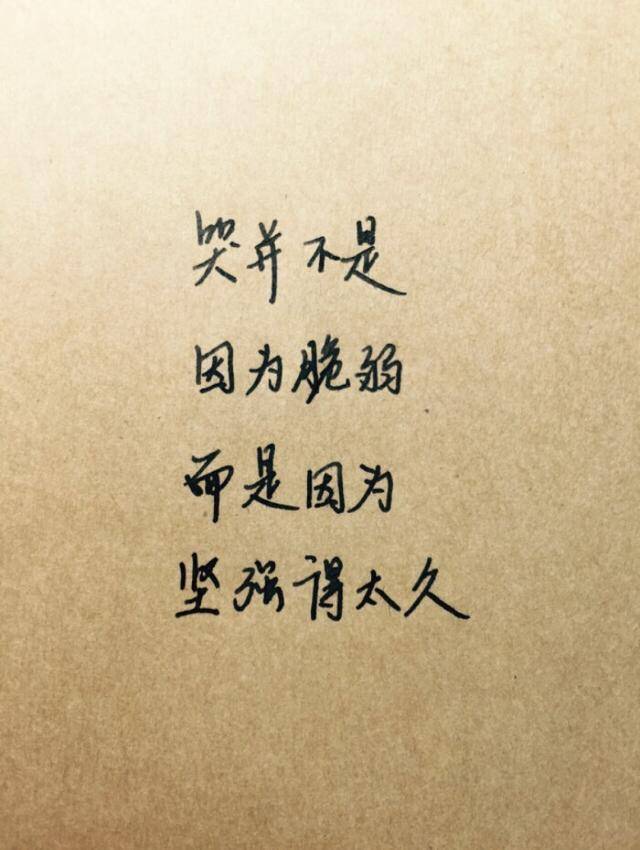 哭并不是
因为脆弱
而是因为
坚强得太久